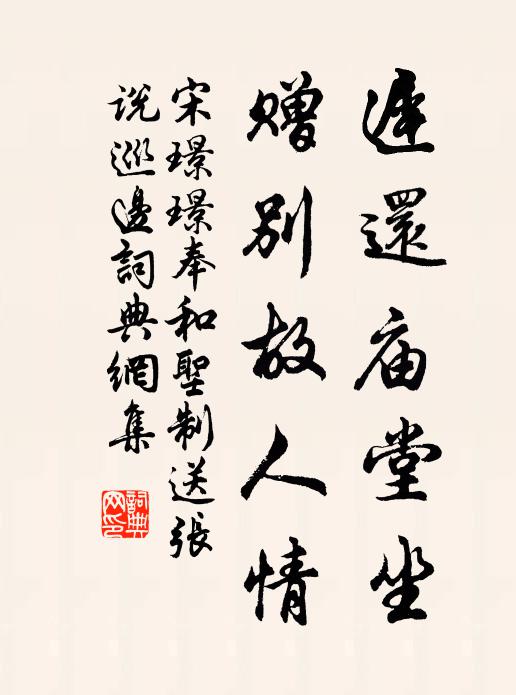 遲還庙堂坐
赠別故人情
宋璟璟奉和聖制送張
说巡邊詞典網集
詞典
网印